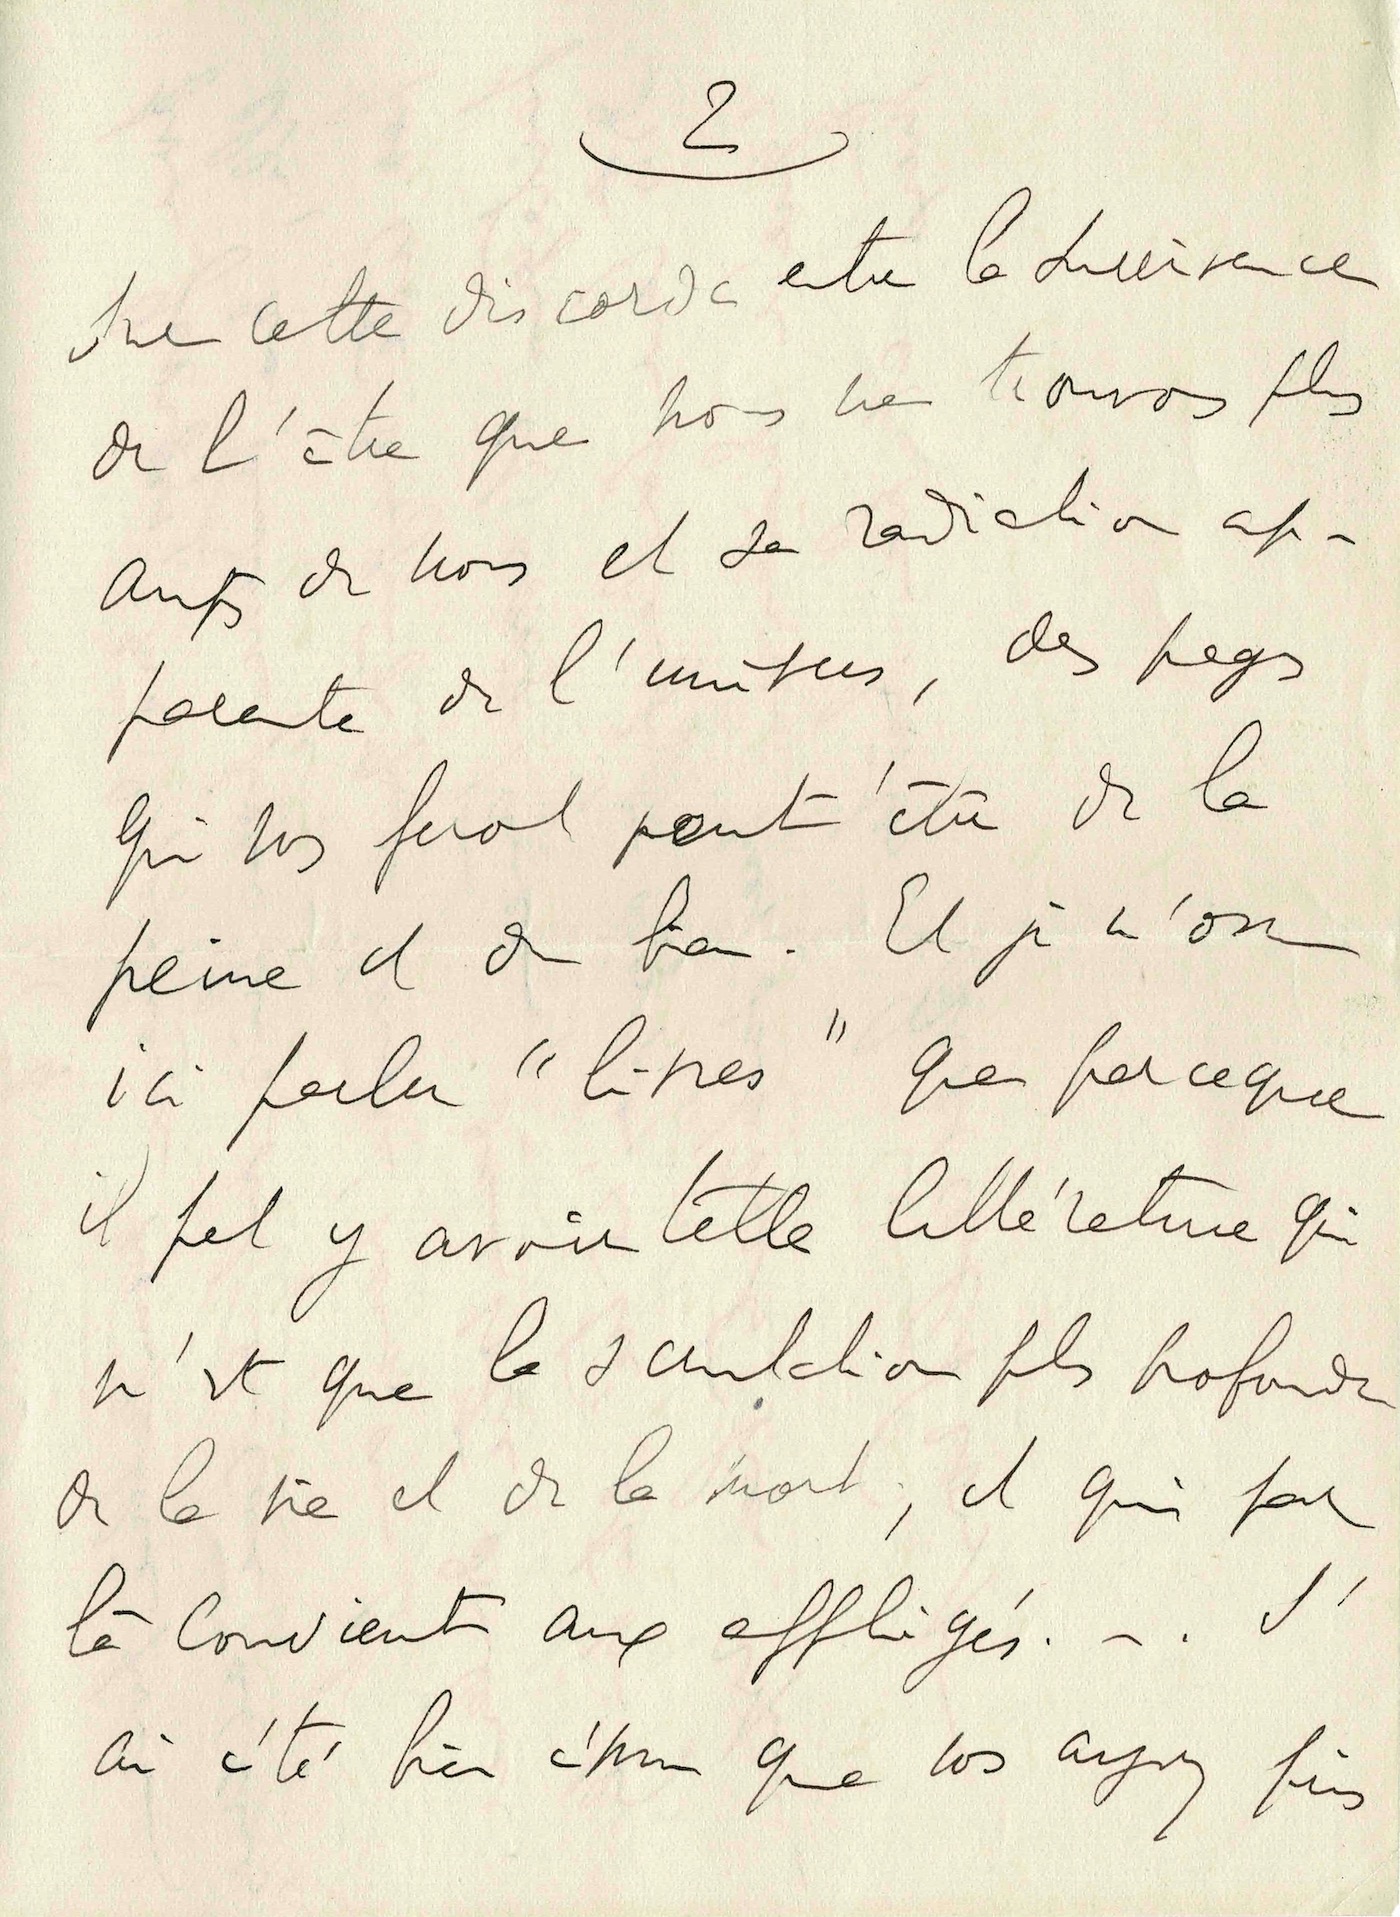 2
sur cette discorde entre la survivance
de l'être que nous ne trouvons plus
auprès de nous et sa radiation ap-
parente de l'univers, des pages
qui vous feront peut'être de la
peine et du bien. Et je n'ose
ici parler "livres" que parceque
il peut y avoir telle littérature qui
n'est que la sensation plus profonde
de la vie et de la mort, et qui par
là convient aux affligés... J'
ai été bien ému que vous ayez pris